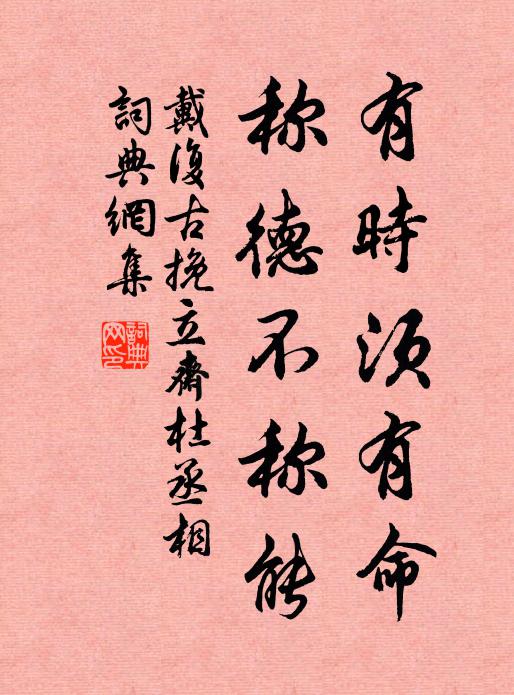 有時須有命
称德不称能
戴復古挽立齋杜丞相
詞典網集
詞典網印